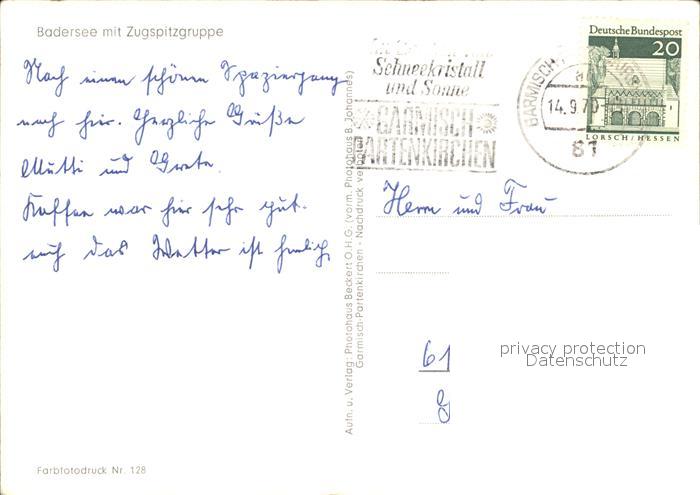 Badersee mit Zugspitzgruppe
Nach einem schönen Spaziergang
noch hier. Herzliche Grüße
Mutti und Greta.
Kaffee war hier sehr gut.
auch das Wetter ist herrlich
Farbfotodruck Nr. 128
Aufn. u. Verlag: Photohaus Beckert O.H.G. (vorm. Photohaus B. Johannes)
Garmisch-Partenkirchen - Nachdruck verboten
Schneekristall
und Sonne
GARMISCH
PARTENKIRCHEN
GARMISCH-
14.9.70
81
Deutsche Bundespost
20
LORSCH/HESSEN
Herrn und Frau
61
privacy protection
Datenschutz